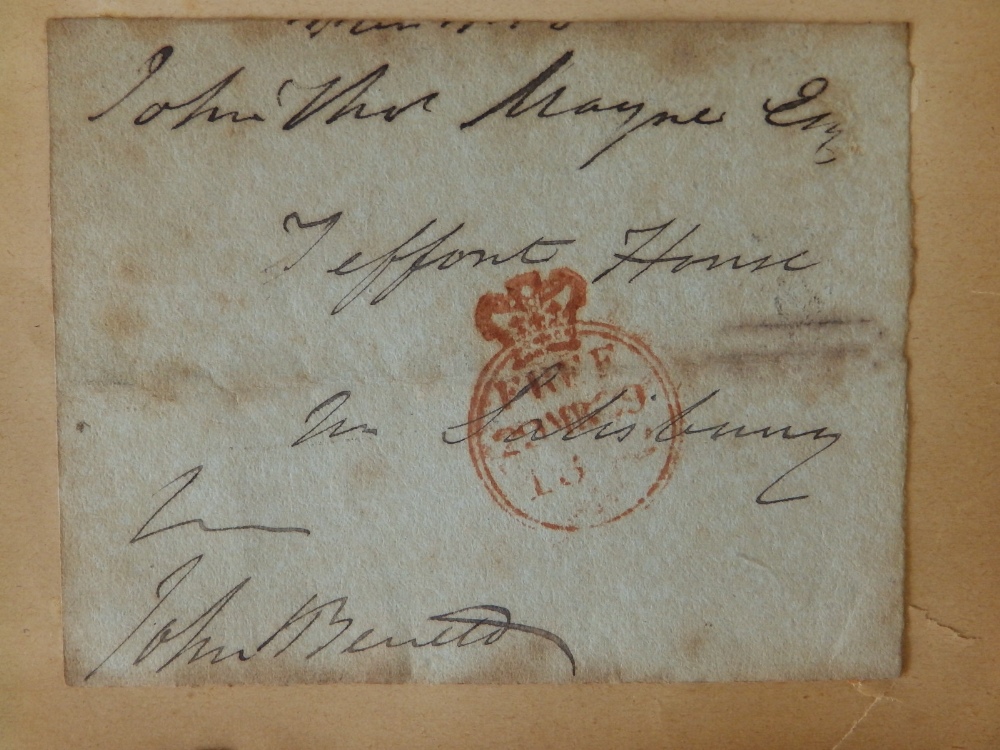 John Thos Mayne Esq
Teffont House
Nr Salisbury
FREE
John Benett